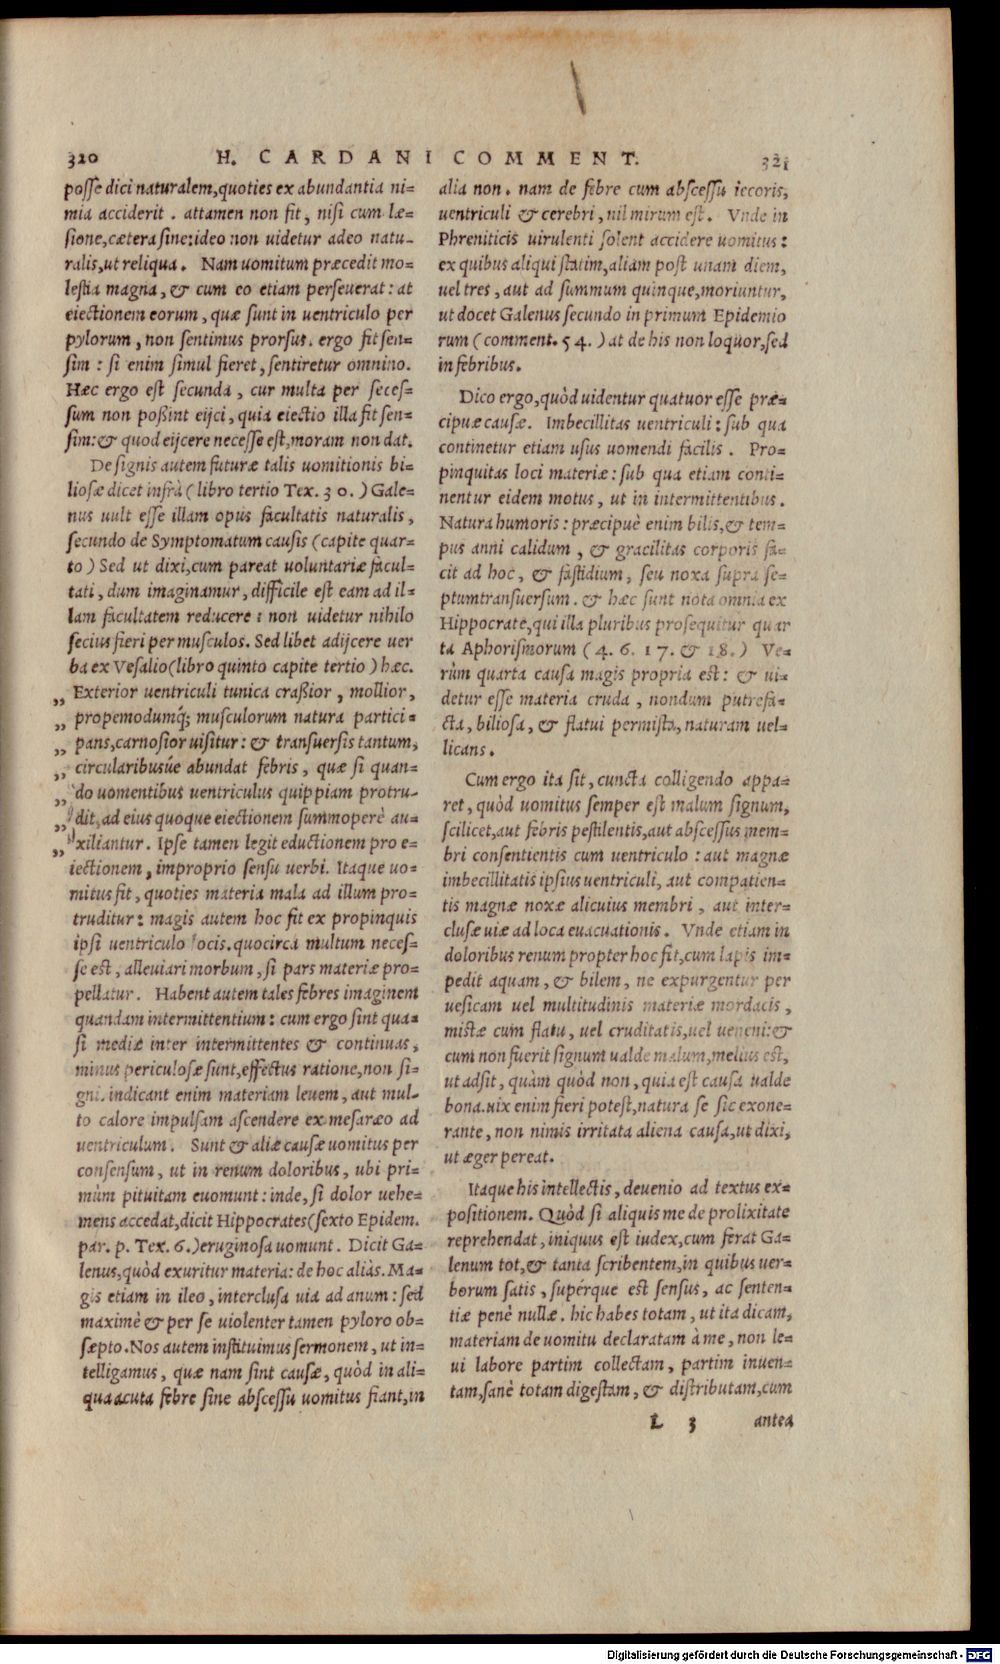 320 H. CARDANI COMMENT. 321
posse dici naturalem, quoties ex abundantia ni=
mia acciderit. attamen non fit, nisi cum læ=
sione, cætera sine: ideo non uidetur adeo natu-
ralis, ut reliqua. Nam uomitum præcedit mo=
lestia magna, & cum eo etiam perseuerat: at
eiectionem eorum, quæ sunt in uentriculo per
pylorum, non sentimus prorsus. ergo fit sen=
sim: si enim simul fieret, sentiretur omnino.
Hæc ergo est secunda, cur multa per seces=
sum non possint eijci, quia eiectio illa fit sen=
sim: & quod eijcere necesse est, moram non dat.
De signis autem futuræ talis uomitionis bi=
liosæ dicet infrà (libro tertio Tex. 30.) Gale=
nus uult esse illam opus facultatis naturalis,
secundo de Symptomatum causis (capite quar=
to) Sed ut dixi, cum pareat uoluntariæ facul=
tati, dum imaginamur, difficile est eam ad il=
lam facultatem reducere: non uidetur nihilo
secius fieri per musculos. Sed libet adijcere uer
ba ex Vesalio (libro quinto capite tertio) hæc.
„ Exterior uentriculi tunica crassior, mollior,
„ propemodumq́; musculorum natura partici=
„ pans, carnosior uisitur: & transuersis tantum,
„ circularibusúe abundat febris, quæ si quan=
„ do uomentibus uentriculus quippiam protru-
„ dit, ad eius quoque eiectionem summoperè au=
„ xiliantur. Ipse tamen legit eductionem pro e=
iectionem, improprio sensu uerbi. Itaque uo=
mitus fit, quoties materia mala ad illum pro=
truditur: magis autem hoc fit ex propinquis
ipsi uentriculo locis. quocirca multum neces=
se est, alleuiari morbum, si pars materiæ pro=
pellatur. Habent autem tales febres imaginem
quandam intermittentium: cum ergo sint qua=
si mediæ inter intermittentes & continuas,
minus periculosæ sunt, effectus ratione, non si=
gni. indicant enim materiam leuem, aut mul-
to calore impulsam ascendere ex mesaræo ad
uentriculum. Sunt & aliæ causæ uomitus per
consensum, ut in renum doloribus, ubi pri=
mùm pituitam euomunt: inde, si dolor uehe=
mens accedat, dicit Hippocrates (sexto Epidem.
par. p. Tex. 6.) eruginosa uomunt. Dicit Ga=
lenus, quòd exuritur materia: de hoc aliàs. Ma=
gis etiam in ileo, interclusa uia ad anum: sed
maximè & per se uiolenter tamen pyloro ob=
sæpto. Nos autem instituimus sermonem, ut in=
telligamus, quæ nam sint causæ, quòd in ali=
qua acuta febre sine abscessu uomitus fiant, in
alia non. nam de febre cum abscessu iecoris,
uentriculi & cerebri, nil mirum est. Vnde in
Phreniticis uirulenti solent accidere uomitus:
ex quibus aliqui statim, aliàm post unam diem,
uel tres, aut ad summum quinque, moriuntur,
ut docet Galenus secundo in primum Epidemio
rum (comment. 54.) at de his non loquor, sed
in febribus.
Dico ergo, quòd uidentur quatuor esse præ=
cipuæ causæ. Imbecillitas uentriculi: sub qua
continetur etiam usus uomendi facilis. Pro=
pinquitas loci materiæ: sub qua etiam conti=
nentur eidem motus, ut in intermittentibus.
Natura humoris: præcipuè enim bilis, & tem=
pus anni calidum, & gracilitas corporis fa=
cit ad hoc, & fastidium, seu noxa supra se=
ptumtransuersum. & hæc sunt nota omnia ex
Hippocrate, qui illa pluribus prosequitur quar
ta Aphorismorum (4. 6. 17. & 18.) Ve=
rùm quarta causa magis propria est: & ui=
detur esse materia cruda, nondum putrefa=
cta, biliosa, & flatui permista, naturam uel=
licans.
Cum ergo ita sit, cuncta colligendo appa=
ret, quòd uomitus semper est malum signum,
scilicet, aut febris pestilentis, aut abscessus mem=
bri consentientis cum uentriculo: aut magnæ
imbecillitatis ipsius uentriculi, aut compatien=
tis magnæ noxæ alicuius membri, aut inter=
clusæ uiæ ad loca euacuationis. Vnde etiam in
doloribus renum propter hoc fit, cum lapis im=
pedit aquam, & bilem, ne expurgentur per
uesicam uel multitudinis materiæ mordacis,
mistæ cum flatu, uel cruditatis, uel ueneni: &
cum non fuerit signum ualde malum, melius est,
ut adsit, quàm quòd non, quia est causa ualde
bona. uix enim fieri potest, natura se sic exone=
rante, non nimis irritata aliena causa, ut dixi,
ut æger pereat.
Itaque his intellectis, deuenio ad textus ex=
positionem. Quòd si aliquis me de prolixitate
reprehendat, iniquus est iudex, cum ferat Ga=
lenum tot, & tanta scribentem, in quibus uer=
borum satis, supérque est sensus, ac senten=
tiæ penè nullæ. hic habes totam, ut ita dicam,
materiam de uomitu declaratam à me, non le=
ui labore partim collectam, partim inuen=
tam, sanè totam digestam, & distributam, cum
L 3 antea
Digitalisierung gefördert durch die Deutsche Forschungsgemeinschaft - DFG